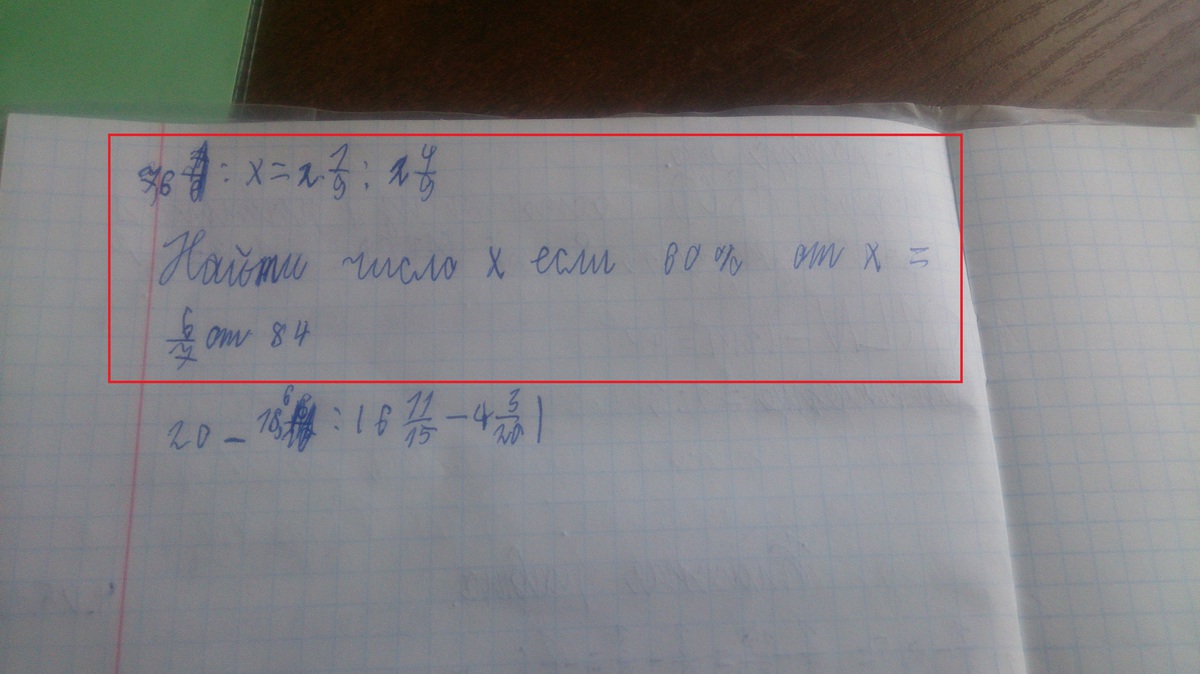 : x = 2 1/9 : 2 4/9
Найти число x если 60% от x =
6/7 от 84
20 - : (6 11/15 - 4 3/20)